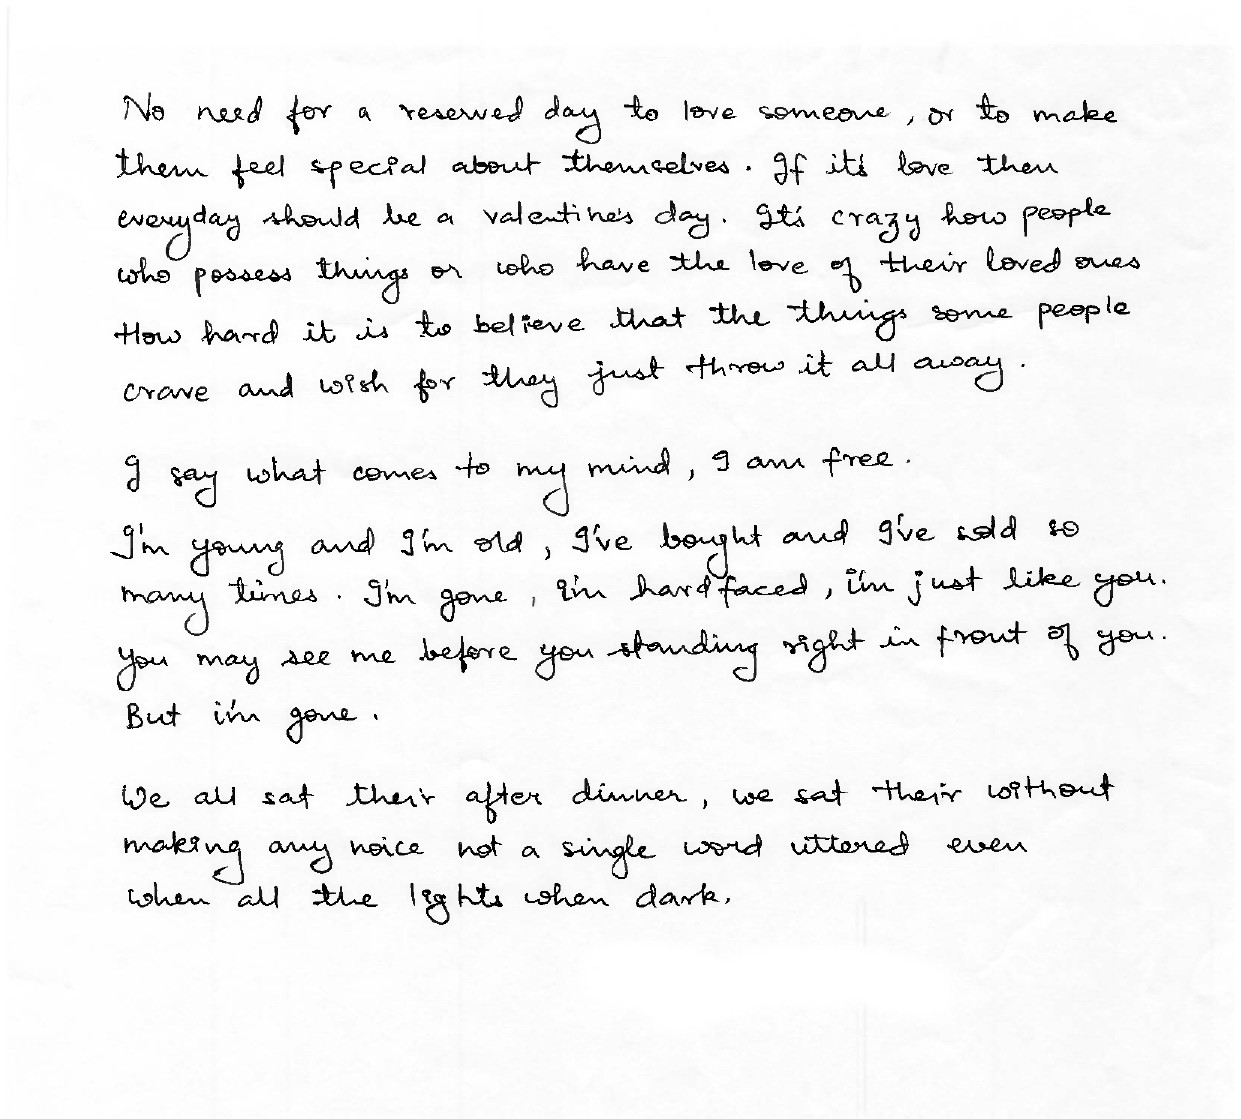 No need for a reserved day to love someone, or to make
them feel special about themselves. If it's love then
everyday should be a valentine's day. It's crazy how people
who possess things or who have the love of their loved ones
How hard it is to believe that the things some people
crave and wish for they just throw it all away.
I say what comes to my mind, I am free.
I'm young and I'm old, I've bought and I've sold so
many times. I'm gone, I'm hardfaced, i'm just like you.
You may see me before you standing right in front of you.
But i'm gone.
We all sat their after dinner, we sat their without
making any noice not a single word uttered even
when all the lights when dark.